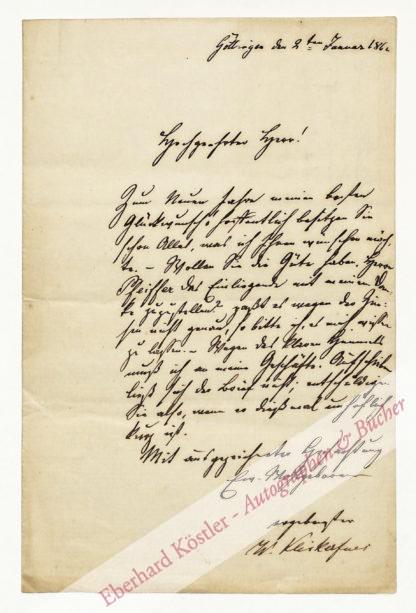 Göttingen den 2ten Januar 186
Hochgeehrter Herr!
Zum Neuen Jahre meinen besten
Glückwunsch! Hoffentlich besitzen Sie
schon Alles, was ich Ihnen wünschen möch-
te. – Wollen Sie die Güte haben, Herrn
Pfeiffer das Einliegende mit meinem Dan-
ke zuzustellen? paßt es wegen der
nicht genau, so bitte ich, es mich wissen
zu lassen. – Wegen des
muß ich an meine Geschäfte.
ließ sich der Brief nicht; entschuldigen
Sie also, wenn er dießmal unhöflich
kurz ist.
Mit ausgezeichneter Hochachtung
Ew. Wohlgeboren
ergebenster
W. Klinkerfues
Eberhard Köstler - Autographen & Bücher